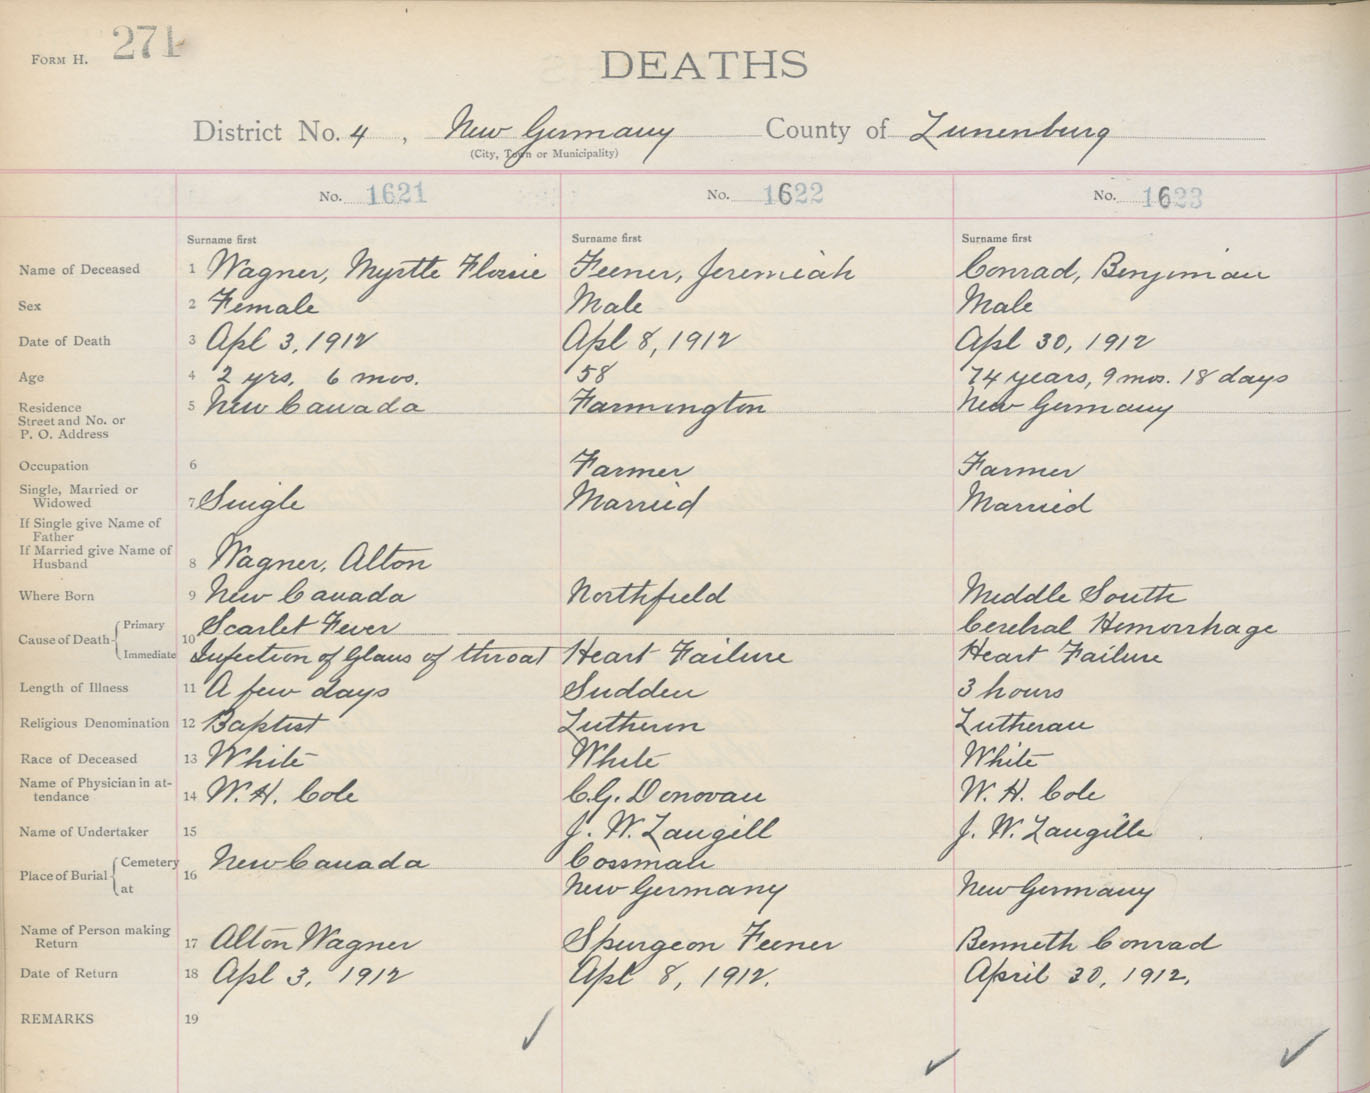 FORM H. 271
DEATHS
District No. 4, New Germany County of Lunenburg
(City, Town or Municipality)
No. 1621 No. 1622 No. 1623
Surname first Surname first Surname first
Name of Deceased 1 Wagner, Myrtle Florie Feener, Jeremiah Conrad, Benjiman
Sex 2 Female Male Male
Date of Death 3 Apl 3, 1912 Apl 8, 1912 Apl 30, 1912
Age 4 2 yrs, 6 mos. 58 74 years, 9 mos. 18 days
Residence 5 New Canada Farmington New Germany
Street and No. or
P. O. Address
Occupation 6 Farmer Farmer
Single, Married or
Widowed 7 Single Married Married
If Single give Name of
Father
If Married give Name of
Husband 8 Wagner, Alton
Where Born 9 New Canada Northfield Middle South
Cause of Death 10 Primary Scarlet Fever Cerebral Hemorrhage
Immediate Infection of Glans of throat Heart Failure Heart Failure
Length of Illness 11 A few days Sudden 3 hours
Religious Denomination 12 Baptist Lutheron Lutheran
Race of Deceased 13 White White White
Name of Physician in at-
tendance 14 W. H. Cole C. G. Donovan W. H. Cole
Name of Undertaker 15 J. W. Langill J. W. Langille
Place of Burial 16 Cemetery New Canada Cossman
at New Germany New Germany
Name of Person making
Return 17 Alton Wagner Spurgeon Feener Benneth Conrad
Date of Return 18 Apl 3, 1912 Apl 8, 1912. April 30, 1912.
REMARKS 19